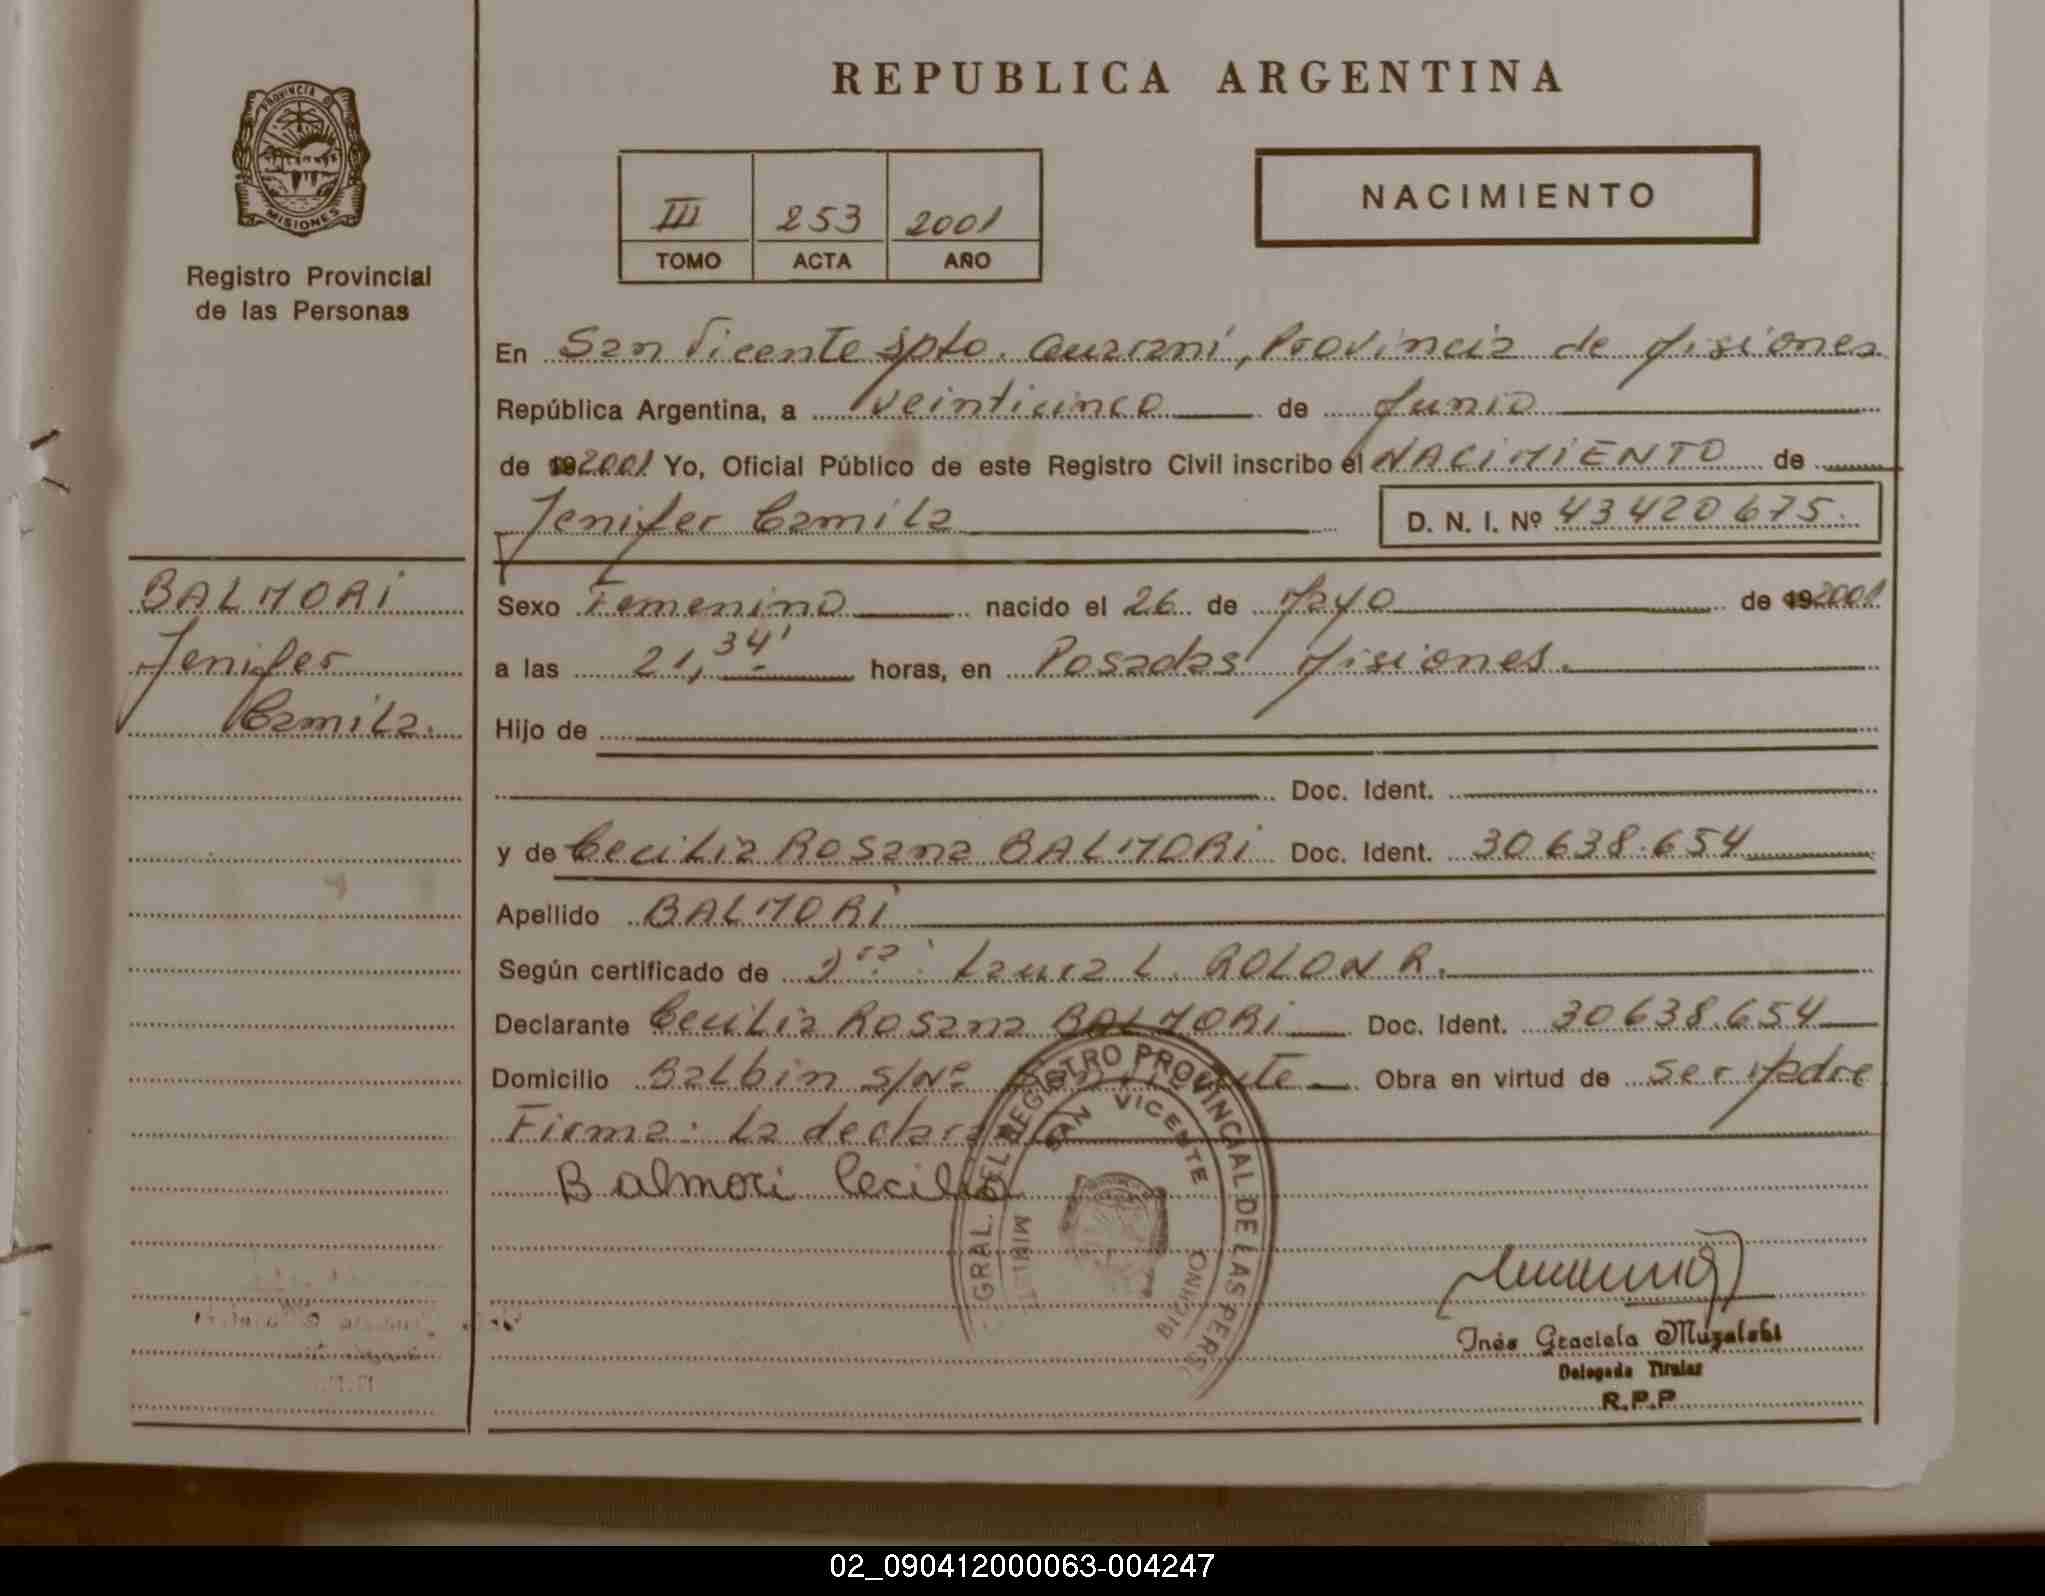 REPUBLICA ARGENTINA
PROVINCIA DE
MISIONES
Registro Provincial
de las Personas
III 253 2001
TOMO ACTA AÑO
NACIMIENTO
En San Vicente Dpto. Guaraní, Provincia de Misiones
República Argentina, a veinticinco de Junio
de 192001 Yo, Oficial Público de este Registro Civil inscribo el NACIMIENTO de
Jenifer Camila D. N. I. Nº 43420675.
BALMORI
Jenifer
Camila.
Sexo Femenino nacido el 26 de Mayo de 192001
a las 21,34' horas, en Posadas Misiones.
Hijo de
Doc. Ident.
y de Cecilia Rosana BALMORI Doc. Ident. 30638.654
Apellido BALMORI
Según certificado de Dra: Laura L. ROLON R.
Declarante Cecilia Rosana BALMORI Doc. Ident. 30638.654
Domicilio Balbin S/Nº San Vicente Obra en virtud de ser Madre
Firma: La declara
Balmori Cecilia
GRAL. DEL REGISTRO PROVINCIAL DE LAS PERS
SAN VICENTE
Inés Graciela Muzalski
Delegada Titular
R.P.P
02_090412000063-004247